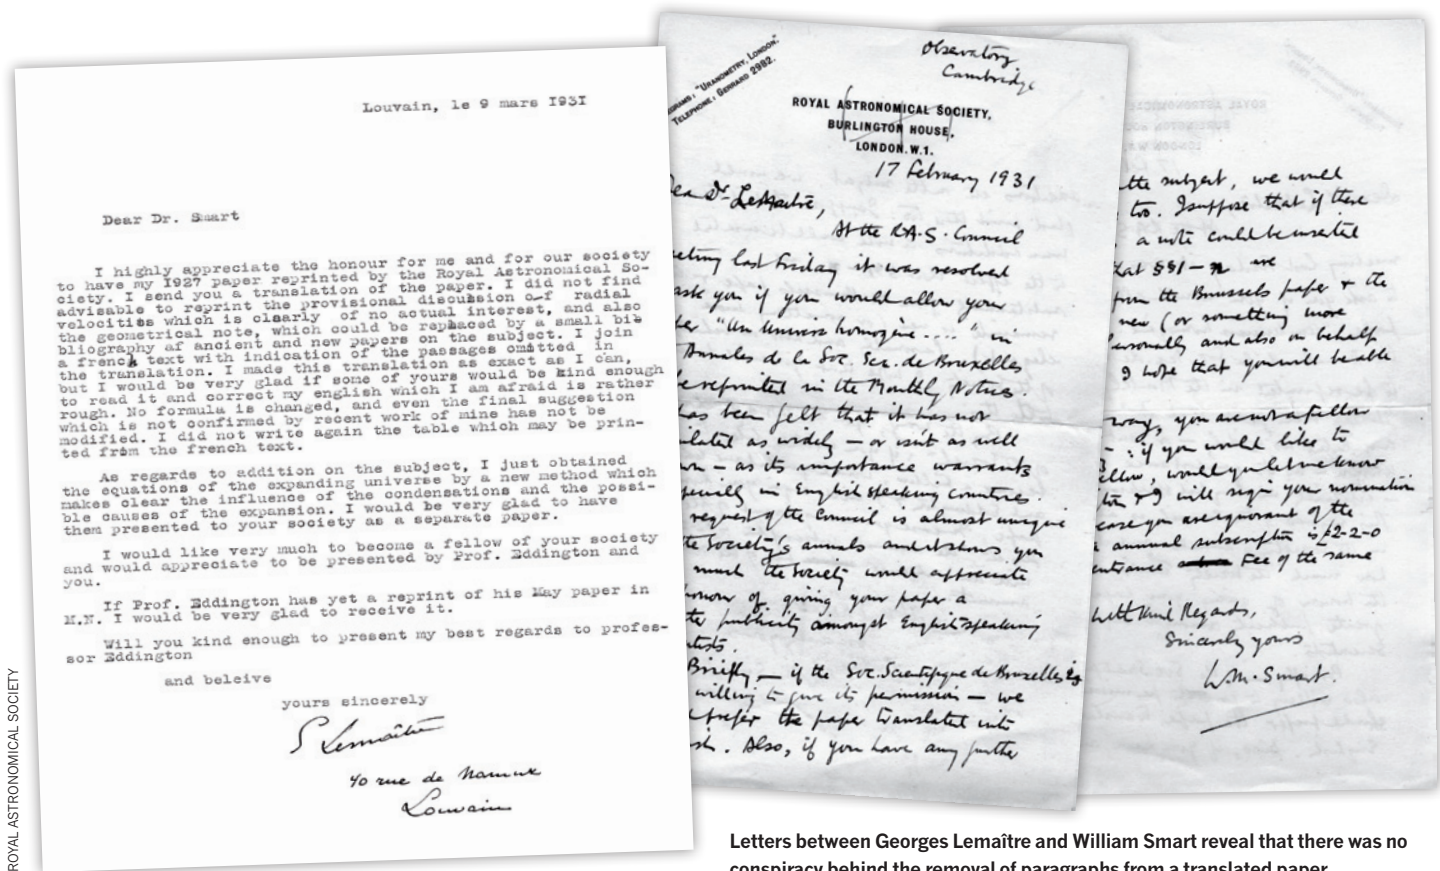 Louvain, le 9 mars 1931
Dear Dr. Smart
I highly appreciate the honour for me and for our society
to have my 1927 paper reprinted by the Royal Astronomical So-
ciety. I send you a translation of the paper. I did not find
advisable to reprint the provisional discussion of radial
velocities which is clearly of no actual interest, and also
the geometrical note, which could be replaced by a small bib
bliography af ancient and new papers on the subject. I join
a french text with indication of the passages omitted in
the translation. I made this translation as exact as I can,
but I would be very glad if some of yours would be kind enough
to read it and correct my english which I am afraid is rather
rough. No formula is changed, and even the final suggestion
which is not confirmed by recent work of mine has not be
modified. I did not write again the table which may be prin-
ted from the french text.
As regards to addition on the subject, I just obtained
the equations of the expanding universe by a new method which
makes clear the influence of the condensations and the possi-
ble causes of the expansion. I would be very glad to have
them presented to your society as a separate paper.
I would like very much to become a fellow of your society
and would appreciate to be presented by Prof. Eddington and
you.
If Prof. Eddington has yet a reprint of his May paper in
M.N. I would be very glad to receive it.
Will you kind enough to present my best regards to profes-
sor Eddington
and beleive
yours sincerely
G Lemaître
40 rue de Namur
Louvain
GRAMS: "URANOMETRY, LONDON."
TELEPHONE: GERRARD 2982.
Observatory
Cambridge
ROYAL ASTRONOMICAL SOCIETY,
BURLINGTON HOUSE,
LONDON.W.1.
17 February 1931
Dear Dr. LeMaitre,
At the R.A.S. Council
eeting last Friday it was resolved
ask you if you would allow your
"Un Univers homogène...." in
Annales de la Soc. Sci. de Bruxelles
be reprinted in the Monthly Notices.
has been felt that it has not
ulated as widely — or isn't as well
wn — as its importance warrants
pecially in English speaking countries.
request of the Council is almost unique
the Society's annals and it shows you
much the Society would appreciate
honour of giving your paper a
publicity amongst English speaking
ntists.
Briefly — if the Soc. Scientifique de Bruxelles is
willing to give its permission — we
prefer the paper translated into
sh. Also, if you have any further
the subject, we would
too. I suppose that if there
a note could be inserted
that §§1—n are
from the Brussels paper + the
new (or something more
ersonally and also on behalf
I hope that you will be able
way, you are not a fellow
: if you would like to
ellow, would you let me know
ton + I will sign your nomination
case you are ignorant of the
annual subscription is £2-2-0
entrance Fee of the same
With kind Regards,
Sincerely yours
W.M. Smart.
ROYAL ASTRONOMICAL SOCIETY
Letters between Georges Lemaître and William Smart reveal that there was no
conspiracy behind the removal of paragraphs from a translated paper.